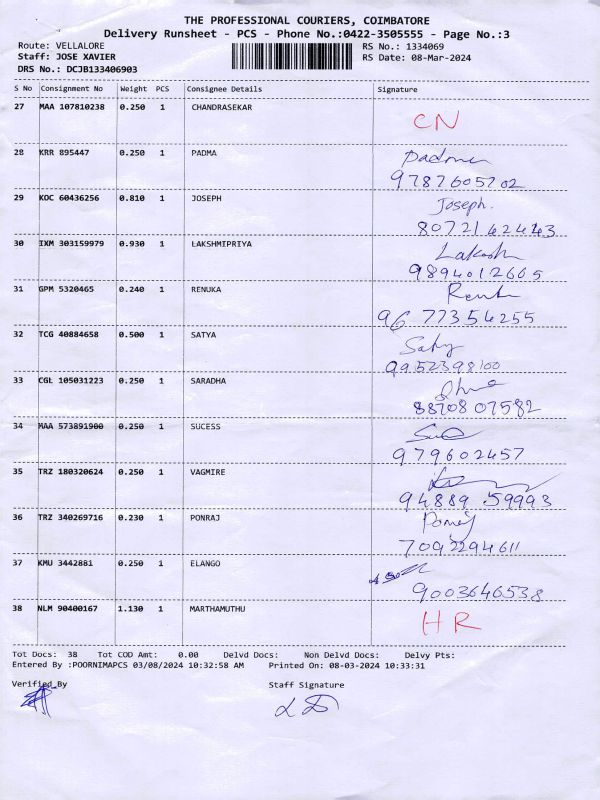 THE PROFESSIONAL COURIERS, COIMBATORE
Delivery Runsheet - PCS - Phone No.:0422-3505555 - Page No.:3
Route: VELLALORE RS No.: 1334069
Staff: JOSE XAVIER RS Date: 08-Mar-2024
DRS No.: DCJB133406903
S No Consignment No Weight PCS Consignee Details Signature
27 MAA 107810238 0.250 1 CHANDRASEKAR CN
28 KRR 895447 0.250 1 PADMA Padma
9787605702
29 KOC 60436256 0.810 1 JOSEPH Joseph.
8072142443
30 IXM 303159979 0.930 1 LAKSHMIPRIYA Laksh
9894012665
31 GPM 5320465 0.240 1 RENUKA Renu
9677354255
32 TCG 40884658 0.500 1 SATYA Saty
9952398100
33 CGL 105031223 0.250 1 SARADHA
8870807582
34 MAA 573891900 0.250 1 SUCESS
979602457
35 TRZ 180320624 0.250 1 VAGMIRE
94889 59993
36 TRZ 340269716 0.230 1 PONRAJ
7092294611
37 KMU 3442881 0.250 1 ELANGO
9003646538
38 NLM 90400167 1.130 1 MARTHAMUTHU HR
Tot Docs: 38 Tot COD Amt: 0.00 Delvd Docs: Non Delvd Docs: Delvy Pts:
Entered By :POORNIMAPCS 03/08/2024 10:32:58 AM Printed On: 08-03-2024 10:33:31
Verified By Staff Signature